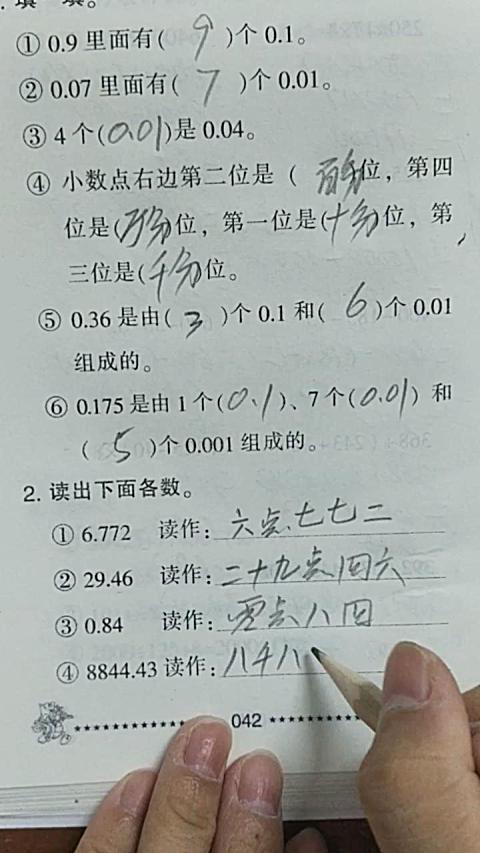 填一填。
① 0.9 里面有( 9 )个 0.1。
② 0.07 里面有( 7 )个 0.01。
③ 4 个(0.01)是 0.04。
④ 小数点右边第二位是（百分位，第四
位是(万分位，第一位是(十分位，第
三位是(千分位。
⑤ 0.36 是由( 3 )个 0.1 和( 6 )个 0.01
组成的。
⑥ 0.175 是由 1 个(0.1)、7 个(0.01) 和
( 5 )个 0.001 组成的。
2. 读出下面各数。
① 6.772 读作：六点七七二
② 29.46 读作：二十九点四六
③ 0.84 读作：零点八四
④ 8844.43 读作：八千八
042